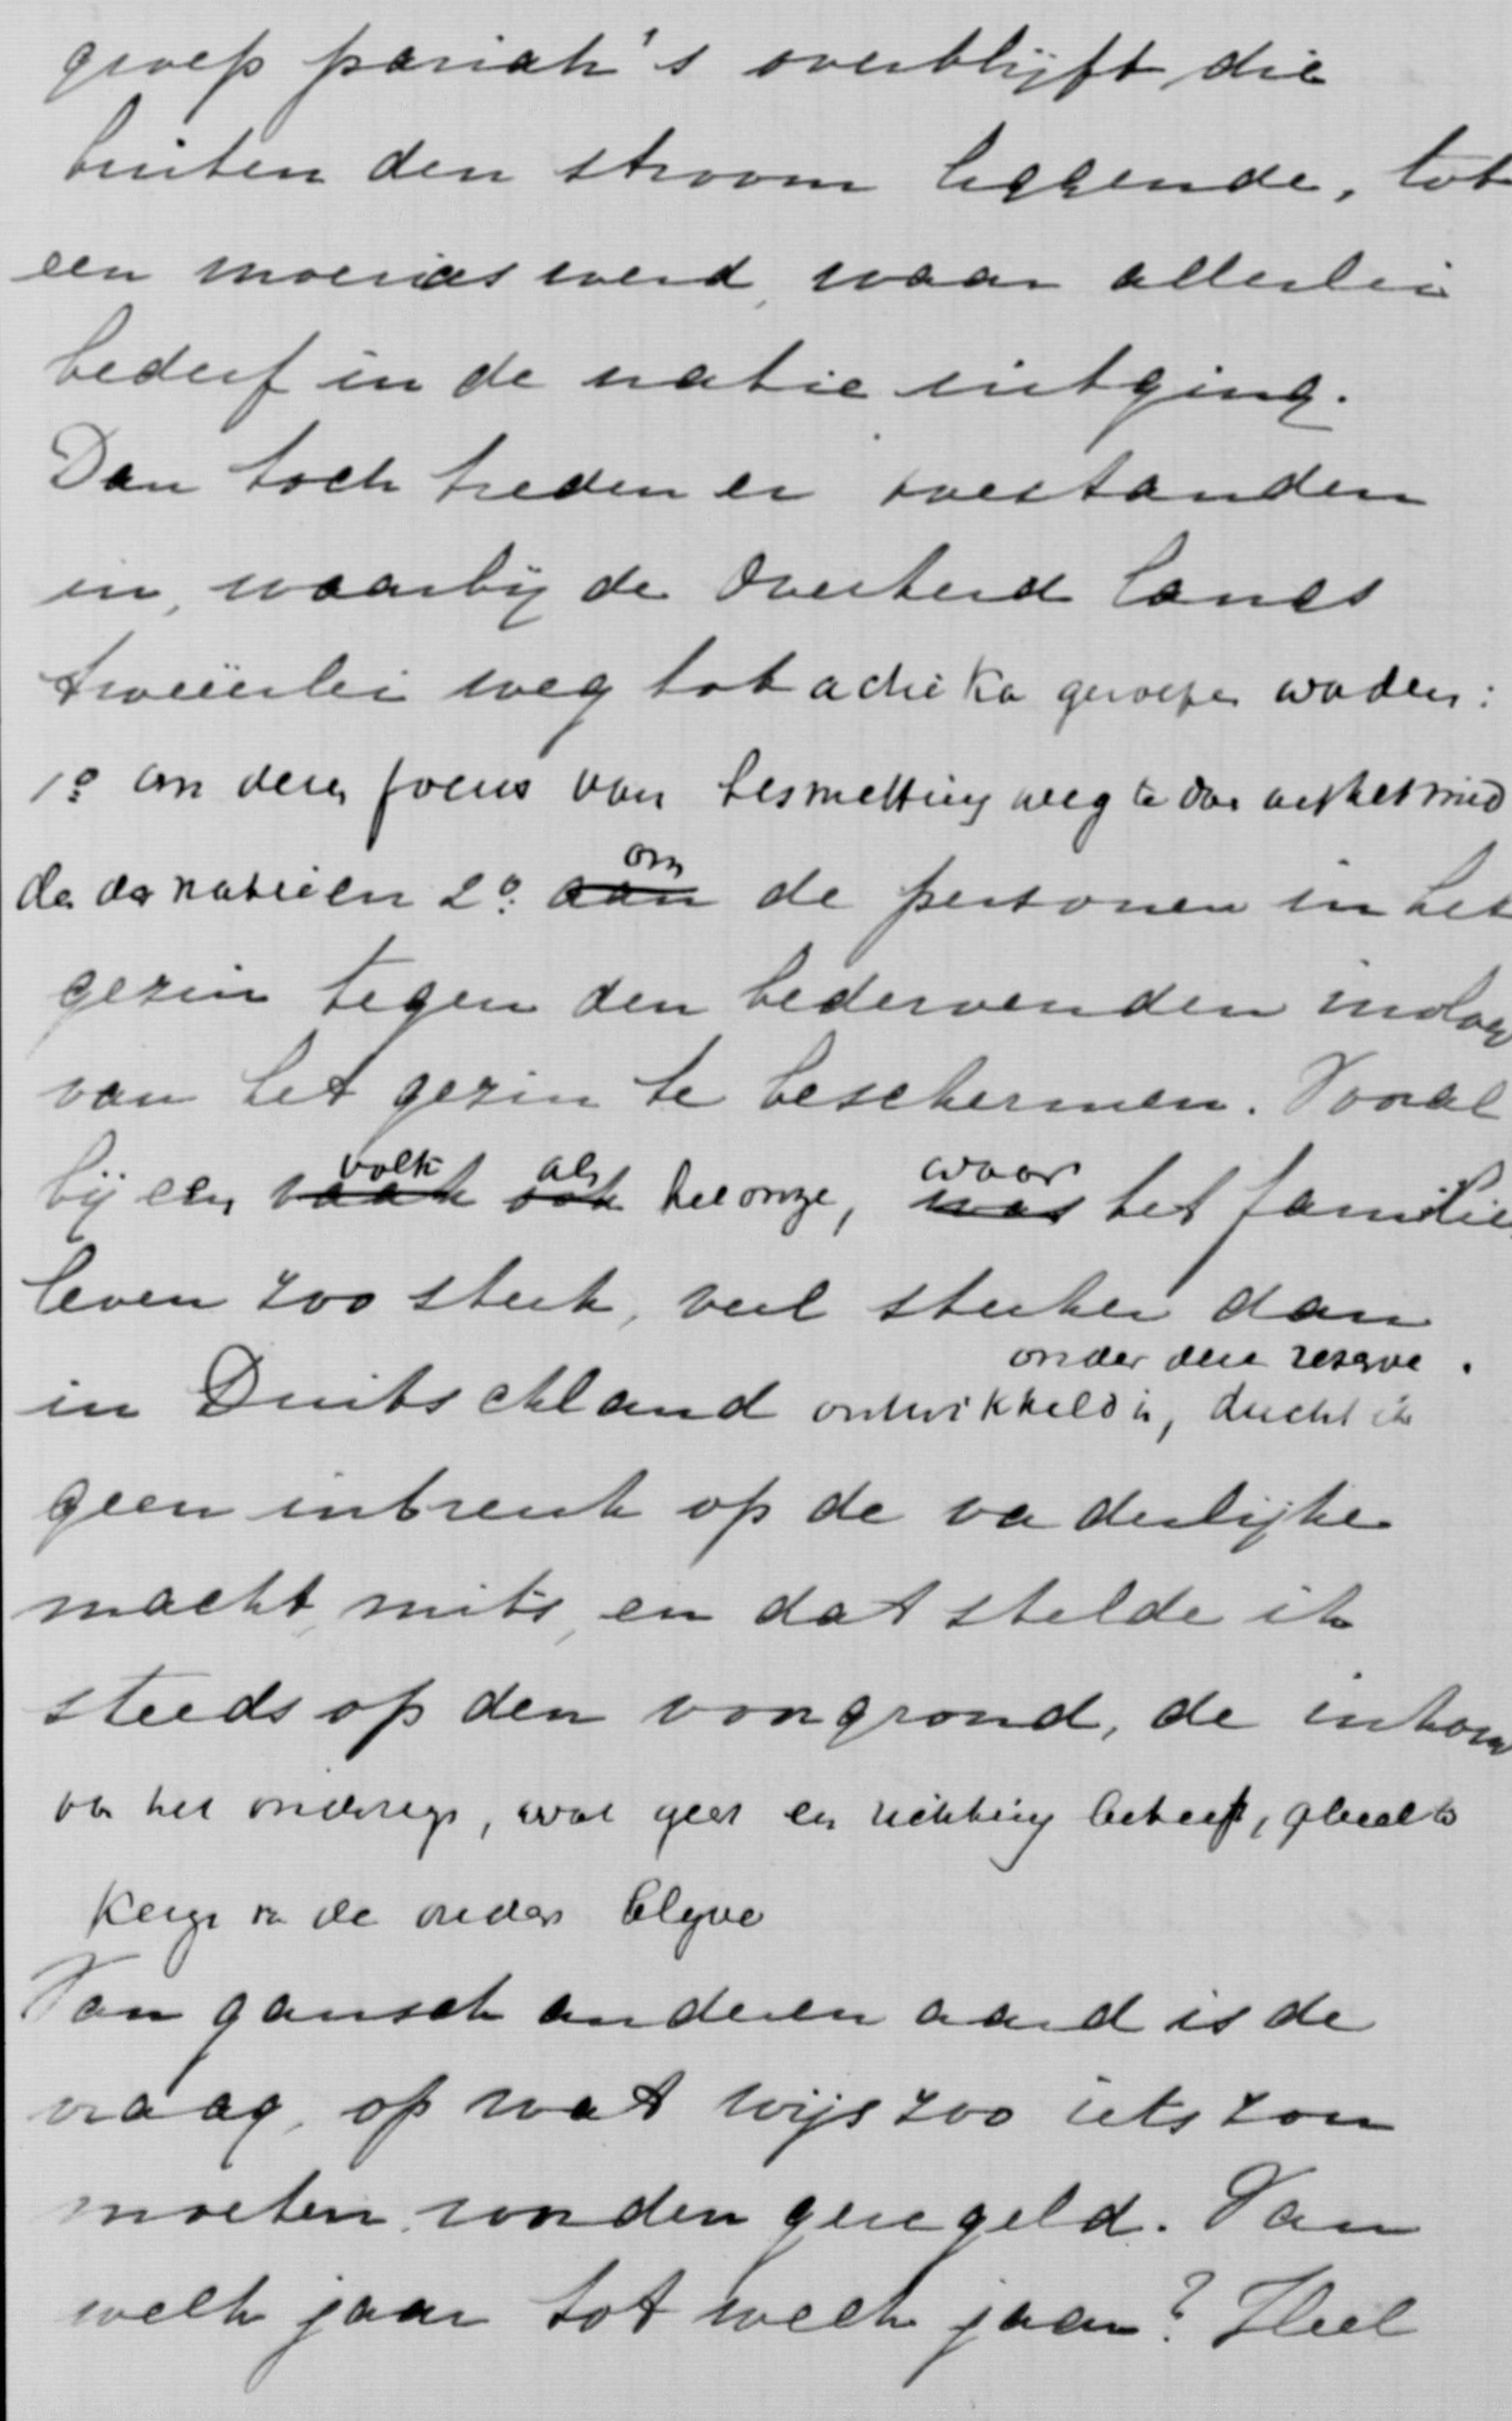 groep pariah's overblijft die
buiten den stroom liggende, tot
een moeras werd, waar allerlei
bederf in de natie uitging.
Dan toch treden er toestanden
in, waarbij de Overheid langs
tweeërlei weg tot actie ka geroepen worden:
1º om deze focus van besmetting weg te doe uit het mid
de der natie en 2º om de personen in het
gezin tegen den bedervenden invloed
van het gezin te beschermen. Vooral
bij een volk als het onze, waar het familie
leven zoo sterk, veel sterker dan
in Duitschland ontwikkeld is, ducht ik onder deze reserve
geen inbreuk op de vaderlijke
macht, mits, en dat stelde ik
steeds op den voorgrond, de
het onderwijs, wat geest en richting betreft,
de ouders blijve
Van gansch anderen aard is de
vraag, op wat wijs zoo iets zou
moeten worden geregeld. Van
welk jaar tot welk jaar? Heel